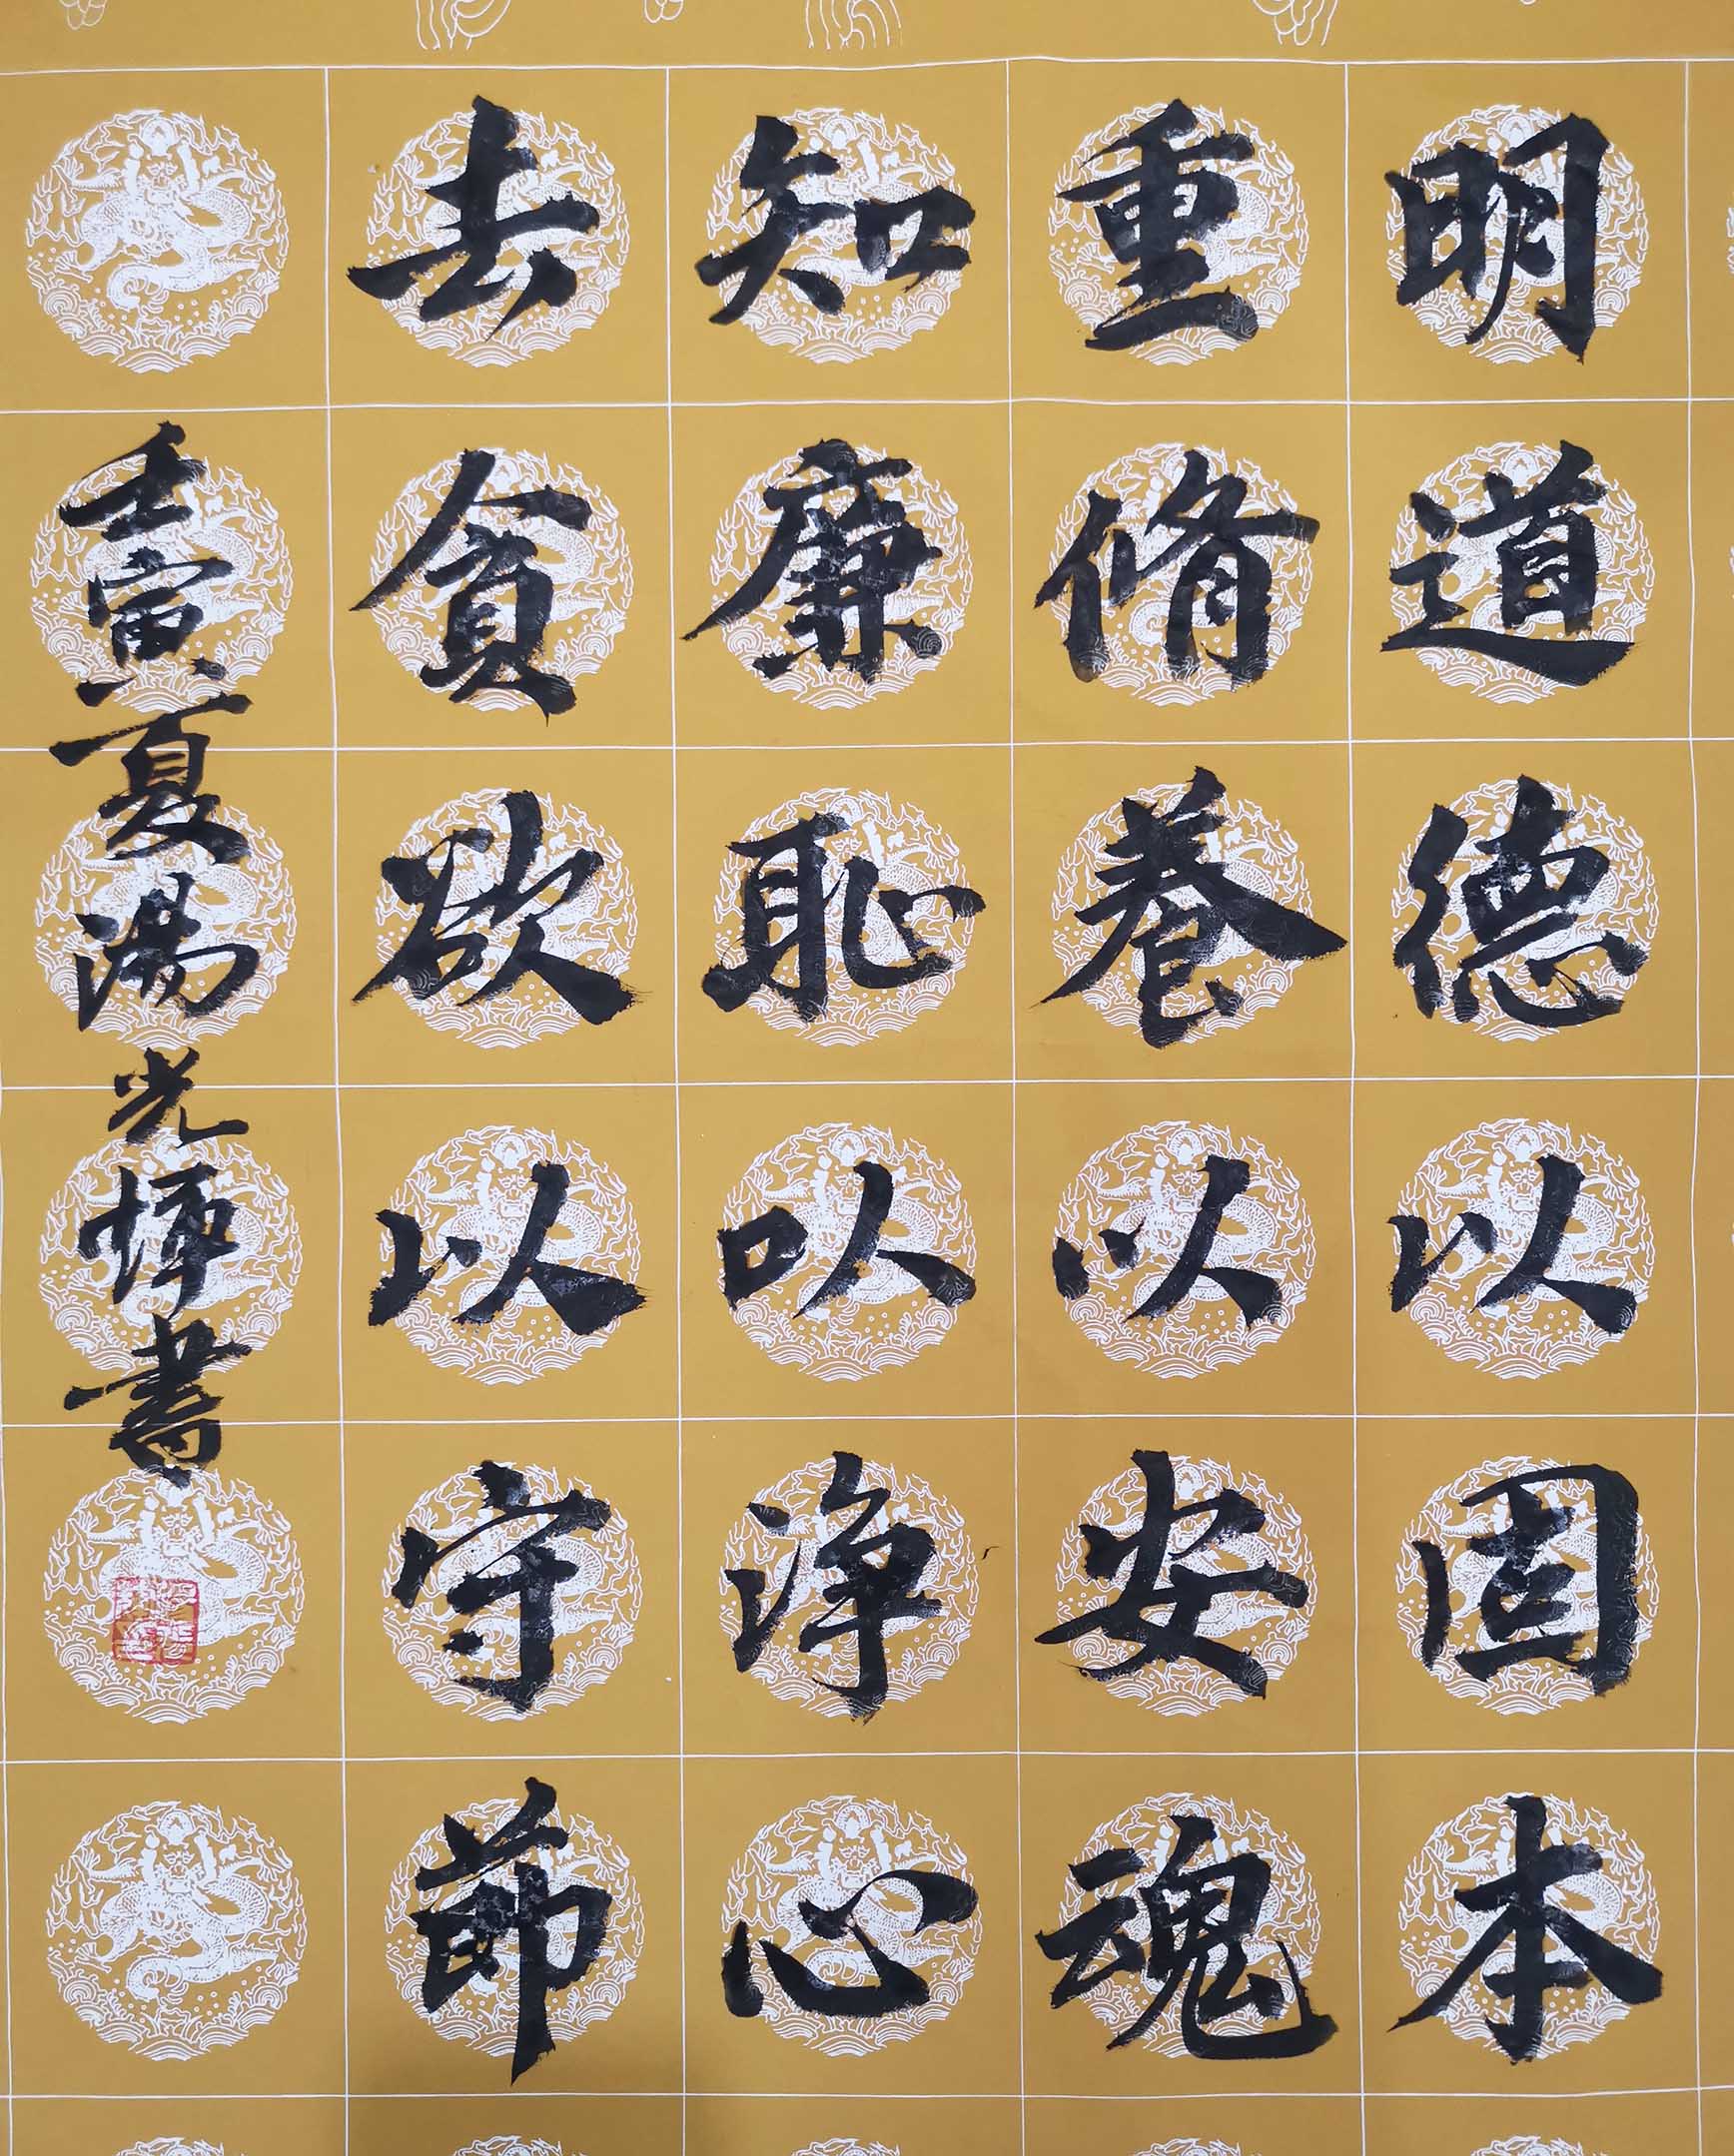 明道德以固本
重脩養以安魂
知廉恥以淨心
去貪欲以守節
壬寅夏湯光煇書